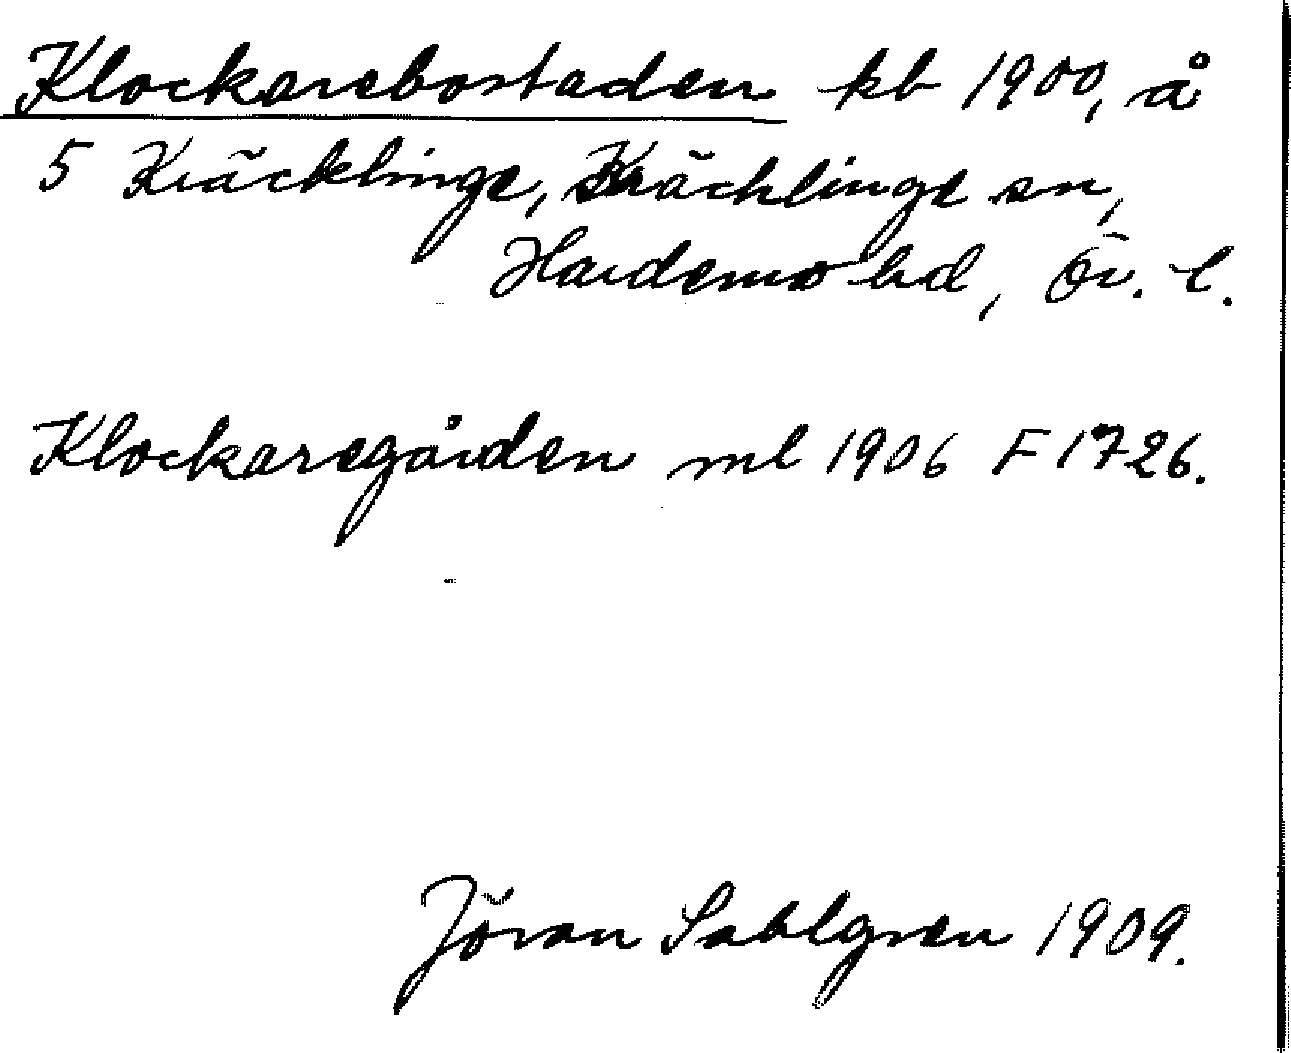 Klockarebostaden kb 1900, å
5 Kräcklinge, Kräcklinge sn,
Hardemo hd, Ör. l.
Klockaregården ml 1906 F 1726.
Jöran Sahlgren 1909.